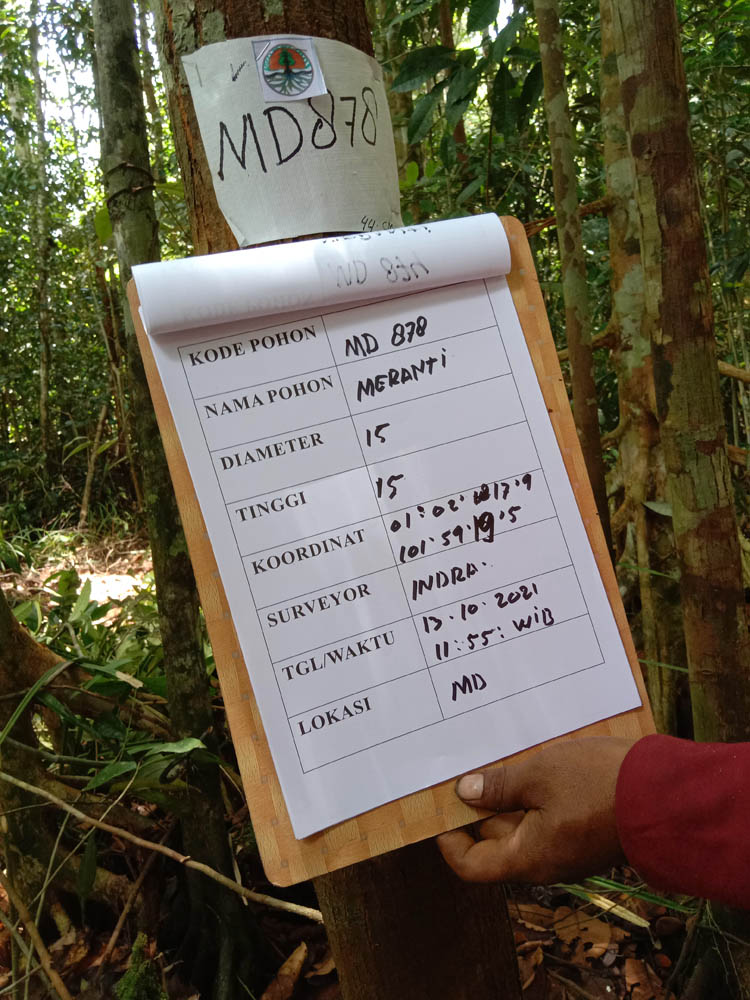 MD878
KODE POHON MD 878
NAMA POHON MERANTi
DIAMETER 15
TINGGI 15
KOORDINAT 01:02:17.9
101.59.19.5
SURVEYOR INDRA.
TGL/WAKTU 13.10.2021
11:55: WiB
LOKASI MD